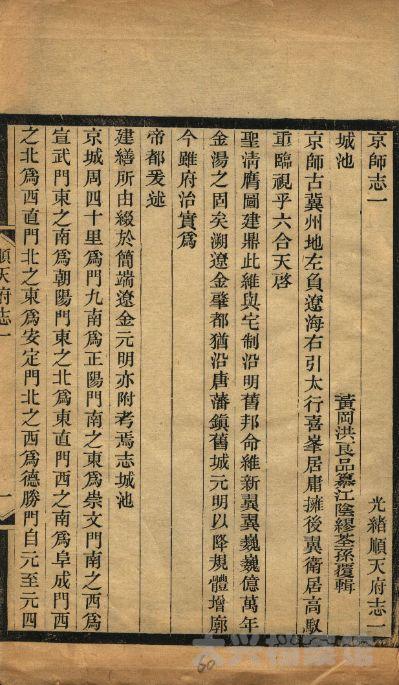 京師志一　光緒順天府志一
城池　黃岡洪良品纂江陰繆荃孫覆輯
京師古冀州地左負遼海右引太行喜峯居庸擁後翼衛居高馭
重臨視乎六合天啓
聖清膺圖建鼎此維與宅制沿明舊邦命維新翼翼巍巍億萬年
金湯之固矣溯遼金肇都猶沿唐藩鎮舊城元明以降規體增廓
今雖府治實爲
帝都爰述
建繕所由綴於簡端遼金元明亦附考焉志城池
京城周四十里爲門九南爲正陽門南之東爲崇文門南之西爲
宣武門東之南爲朝陽門東之北爲東直門西之南爲阜成門西
之北爲西直門北之東爲安定門北之西爲德勝門自元至元四
順天府志一
一
60